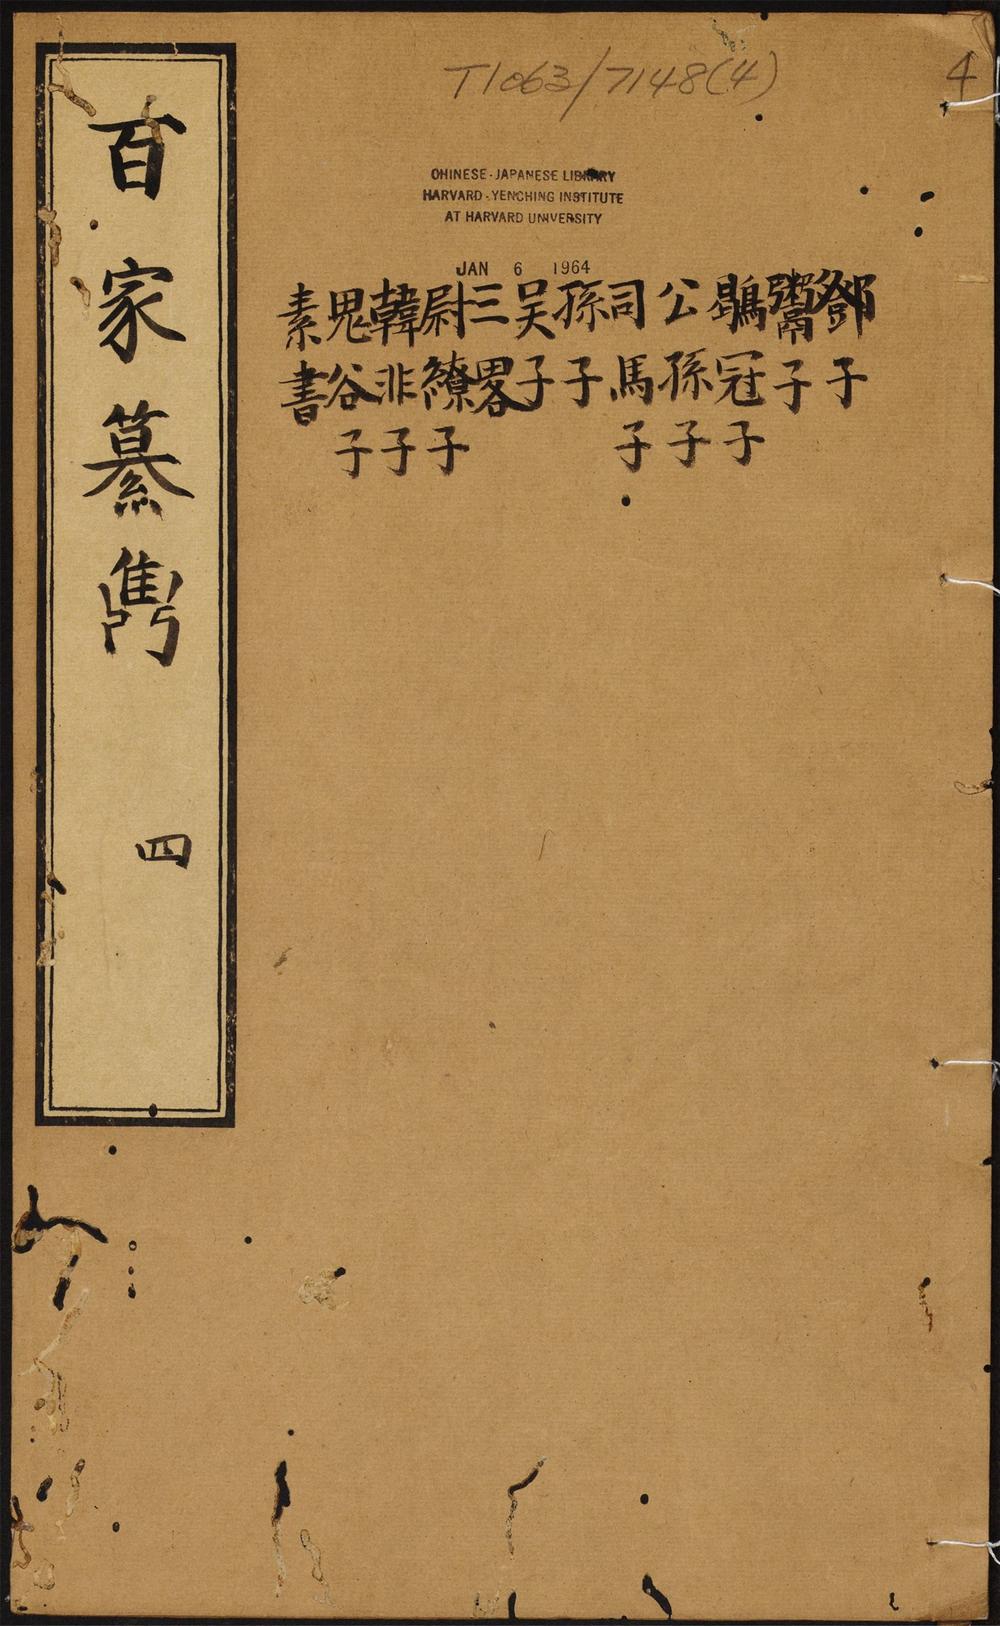 T1063/7148(4)
4
CHINESE-JAPANESE LIBRARY
HARVARD-YENCHING INSTITUTE
AT HARVARD UNIVERSITY
JAN 6 1964
鄧子
鬻子
鶡冠子
公孫子
司馬子
孫子
吳子
三畧
尉繚子
韓非子
鬼谷子
素書
百家纂雋
四